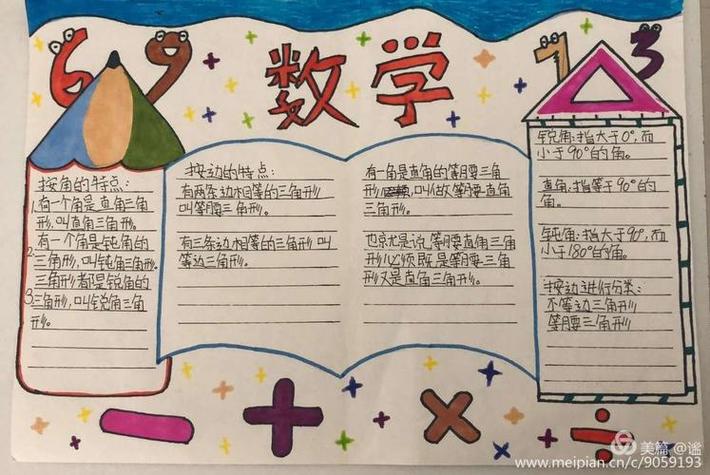 6 9
数学
7 3
按角的特点:
1.有一个角是直角三角
形,叫直角三角形。
2.有一个角是钝角的
三角形,叫钝角三角形。
3.三角形都是锐角的
三角形,叫锐角三角
形。
按边的特点:
有两条边相等的三角形
叫等腰三角形。
有三条边相等的三角形叫
等边三角形。
有一角是直角的等腰三角
形,叫做等腰直角
三角形。
也就是说,等腰直角三角
形必须既是等腰三角
形又是直角三角形。
锐角:指大于0°,而
小于90°的角。
直角:指等于90°的
角。
钝角:指大于90°,而
小于180°的角。
按边进行分类:
不等边三角形
等腰三角形
美篇 @谧
www.meipian.cn/c/9059193